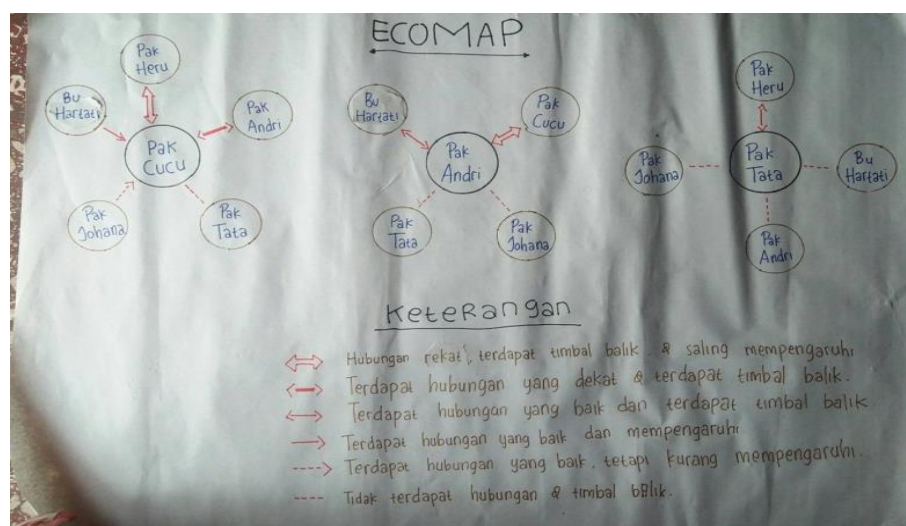 ECOMAP
Pak
Heru
Bu
Hartati
Pak
Andri
Pak
Cucu
Pak
Johana
Pak
Tata
Bu
Hartati
Pak
Cucu
Pak
Andri
Pak
Tata
Pak
Johana
Pak
Heru
Pak
Johana
Pak
Tata
Bu
Hartati
Pak
Andri
Keterangan
Hubungan rekat, terdapat timbal balik & saling mempengaruhi
Terdapat hubungan yang dekat & terdapat timbal balik.
Terdapat hubungan yang baik dan terdapat timbal balik
Terdapat hubungan yang baik dan mempengaruhi
Terdapat hubungan yang baik, tetapi kurang mempengaruhi.
Tidak terdapat hubungan & timbal balik.